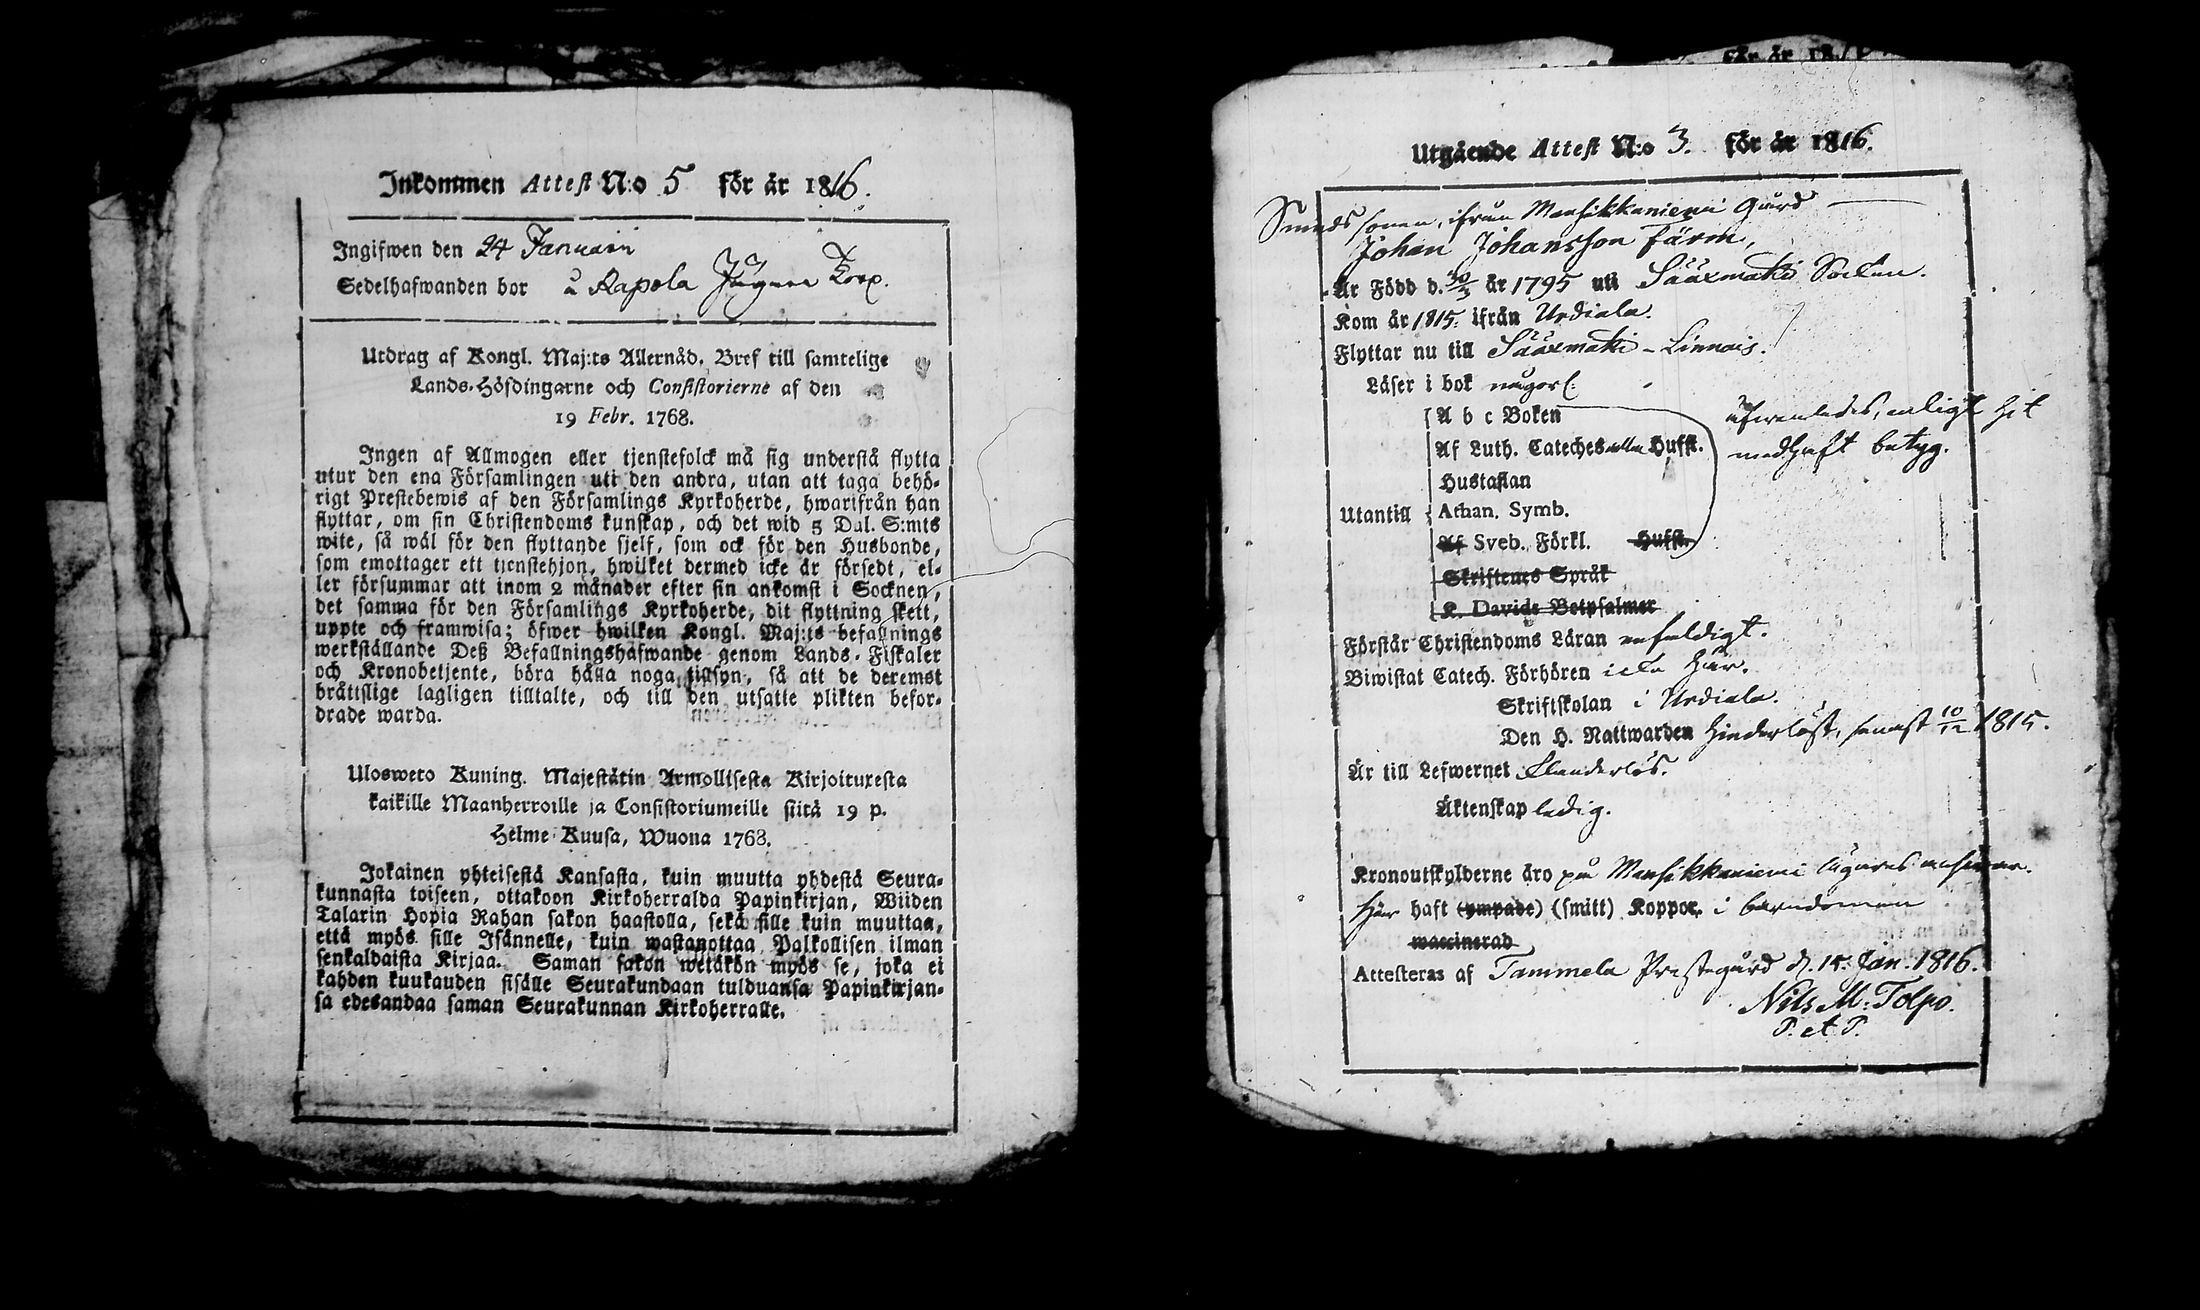 Inkommen Attest N:o 5 för år 1816.
Ingifwen den 24 Januarii
Sedelhafwanden bor å Rapola
Utdrag af Kongl. Maj:ts Allernåd. Bref till samtelige
Lands-Höfdingarne och Consistorierne af den
19 Febr. 1768.
Ingen af Allmogen eller tjenstefolck må sig understå flytta
utur den ena Församlingen uti den andra, utan att taga behö-
rigt Prestebewis af den Församlings Kyrkoherde, hwarifrån han
flyttar, om sin Christendoms kunskap, och det wid 5 Dal. S:mts
wite, så wäl för den flyttande sjelf, som ock för den Husbonde,
som emottager ett tienstehjon, hwilket dermed icke är försedt, el-
ler försummar att inom 2 månader efter sin ankomst i Socknen,
det samma för den Församlings Kyrkoherde, dit flyttning skett,
uppte och framwisa; öfwer hwilken Kongl. Maj:ts befallnings
werkställande Deß Befallningshafwande genom Lands-Fiskaler
och Kronobetjente, böra hålla noga tillsyn, så att de deremot
bråttslige lagligen tilltalte, och till den utsatte plikten befor-
drade warda.
Ulosweto Kuning. Majestätin Armollisesta Kirjoituxesta
kaikille Maanherroille ja Consistoriumeille siitä 19 p.
Helme-Kuusa, Wuona 1768.
Jokainen yhteisestä Kansasta, kuin muutta yhdestä Seura-
kunnasta toiseen, ottakoon Kirkoherralda Papinkirjan, Wiiden
Talarin Hopia Rahan sakon haastolla, sekä sille kuin muuttaa,
että myös sille Isännelle, kuin wastanottaa Palkollisen ilman
senkaldaista Kirjaa. Saman sakon wetäkön myös se, joka ei
kahden kuukauden sisälle Seurakundaan tulduansa Papinkirjan-
sa edesandaa saman Seurakunnan Kirkoherralle.
Utgående Attest N:o 3. för år 1816.
Smeds sonen, ifrån Mansikkaniemi gård
Johan Johansson Färm,
Är Född d. 30/3 år 1795 uti Sääxmäki Socken.
Kom år 1815. ifrån Urdiala.
Flyttar nu till Sääxmäki - Linnais.
Läser i bok någorl:
A b c Boken
Af Luth. Cateches alla Hufst.
Hustaflan
Utantill Athan. Symb.
Af Sveb. Förkl. Hufst.
Skriftenes Språk
K. Davids Botpsalmer
äfwenledes, enligt hit
medhaft betyg.
Förstår Christendoms Läran enfaldigt.
Biwistat Catech. Förhören icke här.
Skriftskolan i Urdiala.
Den H. Nattwarden hinderlöst, senast 10/12 1815.
Är till Lefwernet klanderlös.
Äktenskap ledig.
Kronoutskylderne äro på Mansikkaniemi ägares answar.
Här haft (ympade) (smitt) Koppor. i barndomen
waccinerad
Attesteras af Tammela Prestegård d. 15. Jan. 1816.
Nils M: Tolpo.
P. et P.